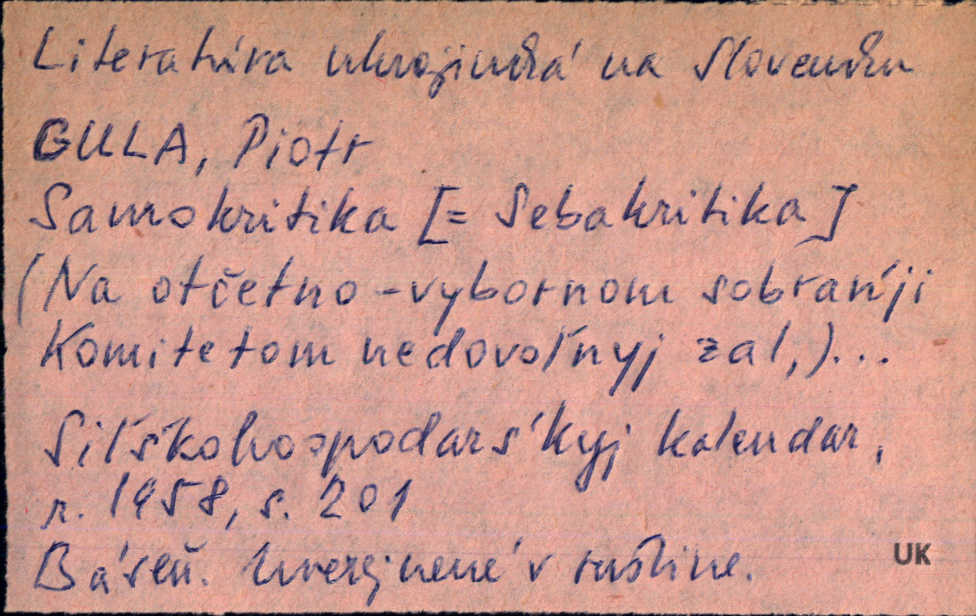 Literatúra ukrajinská na Slovensku
GULA, Piotr
Samokritika [= Sebakritika]
(Na otčetno-vybornom sobraňji
Komitetom nedovoľnyj zal,)...
Siľśkohospodarśkyj kalendar,
r. 1958, s. 201
Báseň. Uverejnené v ruštine.
UK